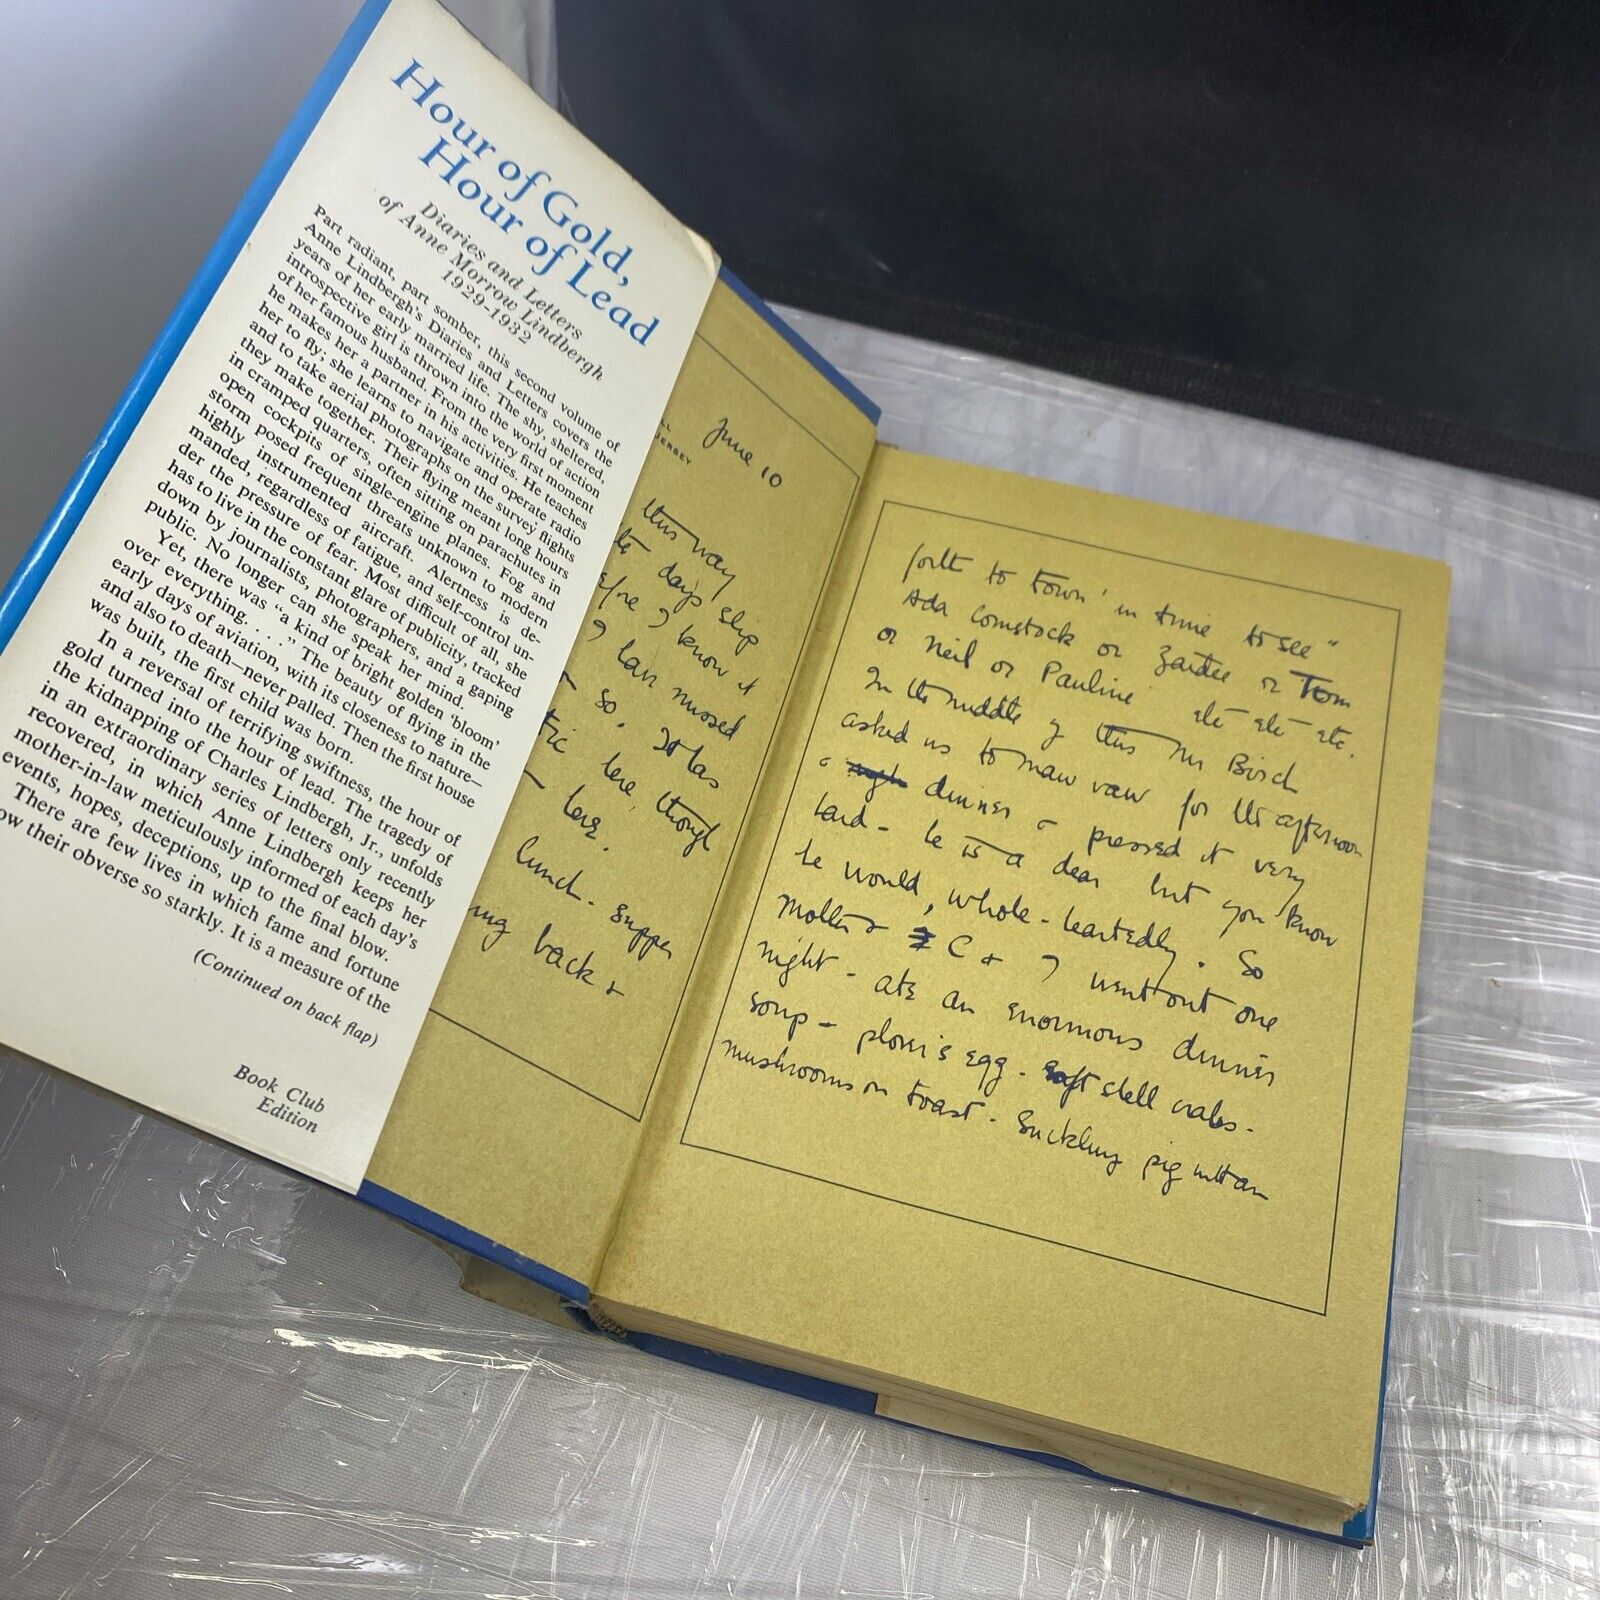 Hour of Gold,
Hour of Lead
Diaries and Letters
of Anne Morrow Lindbergh
1929-1932
Part radiant, part somber, this second volume of
Anne Lindbergh's Diaries and Letters covers the
years of her early married life. The shy, sheltered,
introspective girl is thrown into the world of action
of her famous husband. From the very first moment
he makes her a partner in his activities. He teaches
her to fly; she learns to navigate and operate radio
and to take aerial photographs on the survey flights
they make together. Their flying meant long hours
in cramped quarters, often sitting on parachutes in
open cockpits of single-engine planes. Fog and
storm posed frequent threats unknown to modern
highly instrumented aircraft. Alertness is de-
manded, regardless of fatigue, and self-control un-
der the pressure of fear. Most difficult of all, she
has to live in the constant glare of publicity, tracked
down by journalists, photographers, and a gaping
public. No longer can she speak her mind.
Yet, there was "a kind of bright golden 'bloom'
over everything. . . ." The beauty of flying in the
early days of aviation, with its closeness to nature—
and also to death—never palled. Then the first house
was built, the first child was born.
In a reversal of terrifying swiftness, the hour of
gold turned into the hour of lead. The tragedy of
the kidnapping of Charles Lindbergh, Jr., unfolds
in an extraordinary series of letters only recently
recovered, in which Anne Lindbergh keeps her
mother-in-law meticulously informed of each day's
events, hopes, deceptions, up to the final blow.
There are few lives in which fame and fortune
ow their obverse so starkly. It is a measure of the
(Continued on back flap)
Book Club
Edition
LL
JERSEY
June 10
this way
days slip
I know it
I have missed
so. It has
here, though
here.
lunch. supper
back &
forth to town 'in time to see"
Ada Comstock or or Tom
or Neil or Pauline etc etc etc.
In the middle of this Mr Birch
asked us to for the afternoon
& dinner & pressed it very
hard - he is a dear but you know
he would, whole-heartedly. So
Mother & C & I went out one
night - ate an enormous dinner
soup - plover's egg - soft shell crabs -
mushrooms on toast - Suckling pig with an